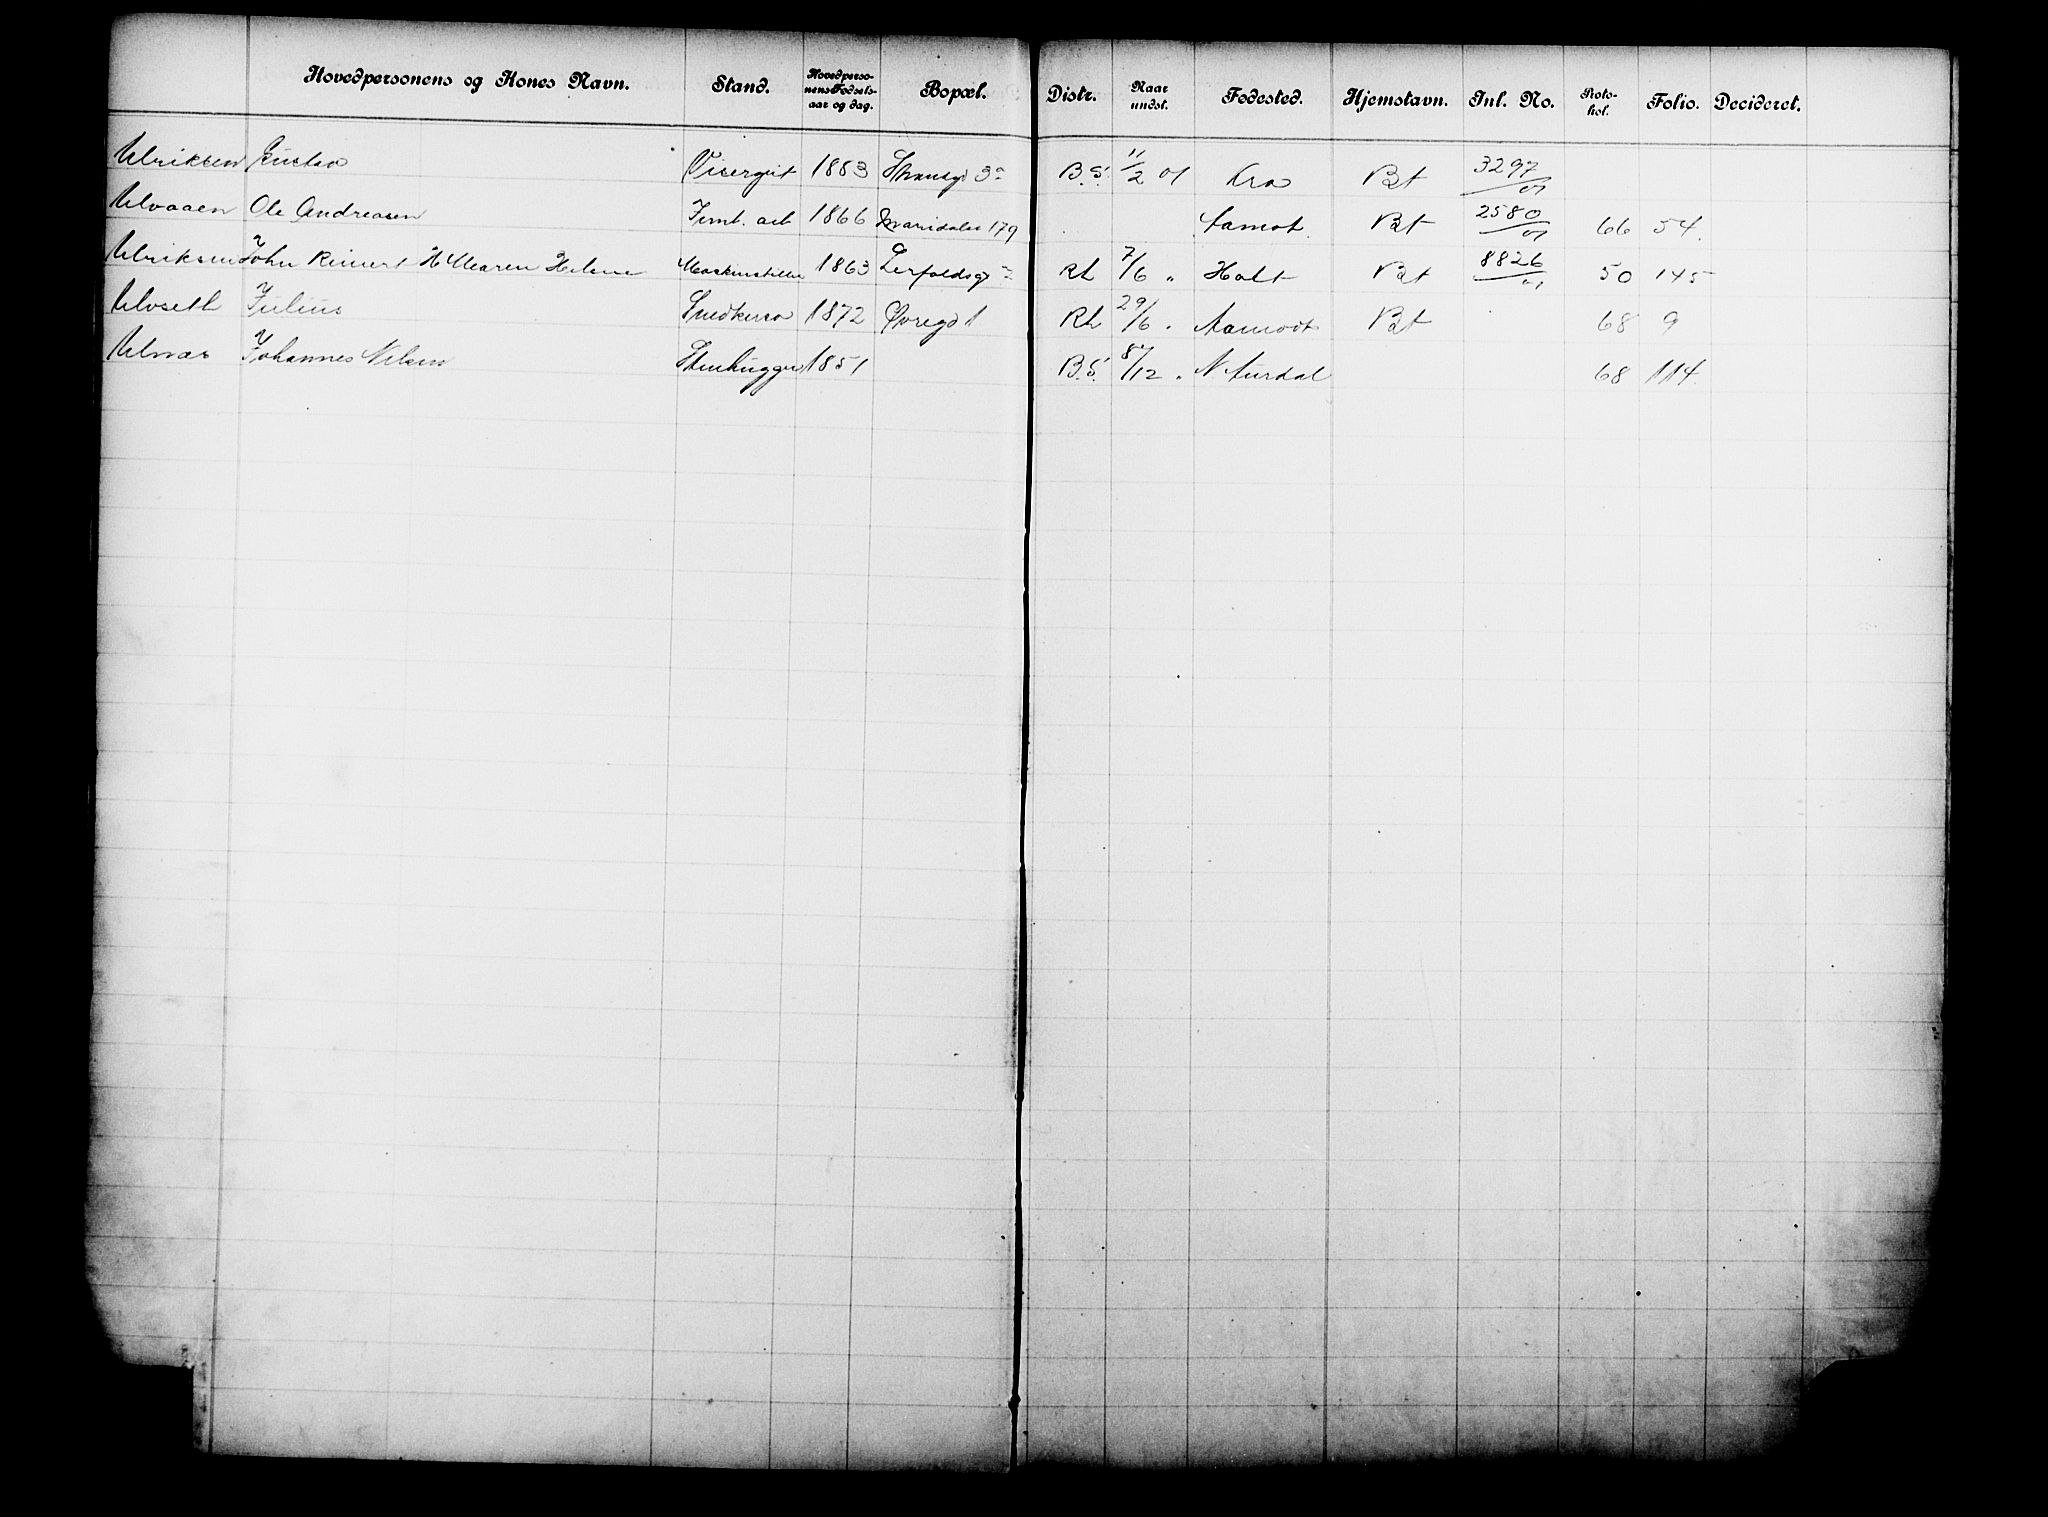 Hovedpersonens og Kones Navn. Stand. Hovedpersonens Fødselsaar og dag. Bopæl. Distr. Naar undst. Fødested. Hjemstavn. Inl. No. Protokol. Folio. Decideret.
Ulriksen Gustav Visergut 1883 3 B.S. 11/2 01 Kra Bt 3297/01
Ulvaaen Ole Andreasen Tømt. arb 1866 Maridalsv 179 Aamot. Bt 2580/01 66 54.
Ulriksen John Reinert H Maren Helene Maskinstiller 1863 RL 7/6 " Holt Bt 8826/01 50 145
Ulvseth Julius Snedkersv 1872 Øvregd 1 RL 29/6 " Aamodt Bt 68 9
Ulnæs Johannes Nilsen Stenhugger 1851 B.S. /12 " N. Aurdal 68 114.